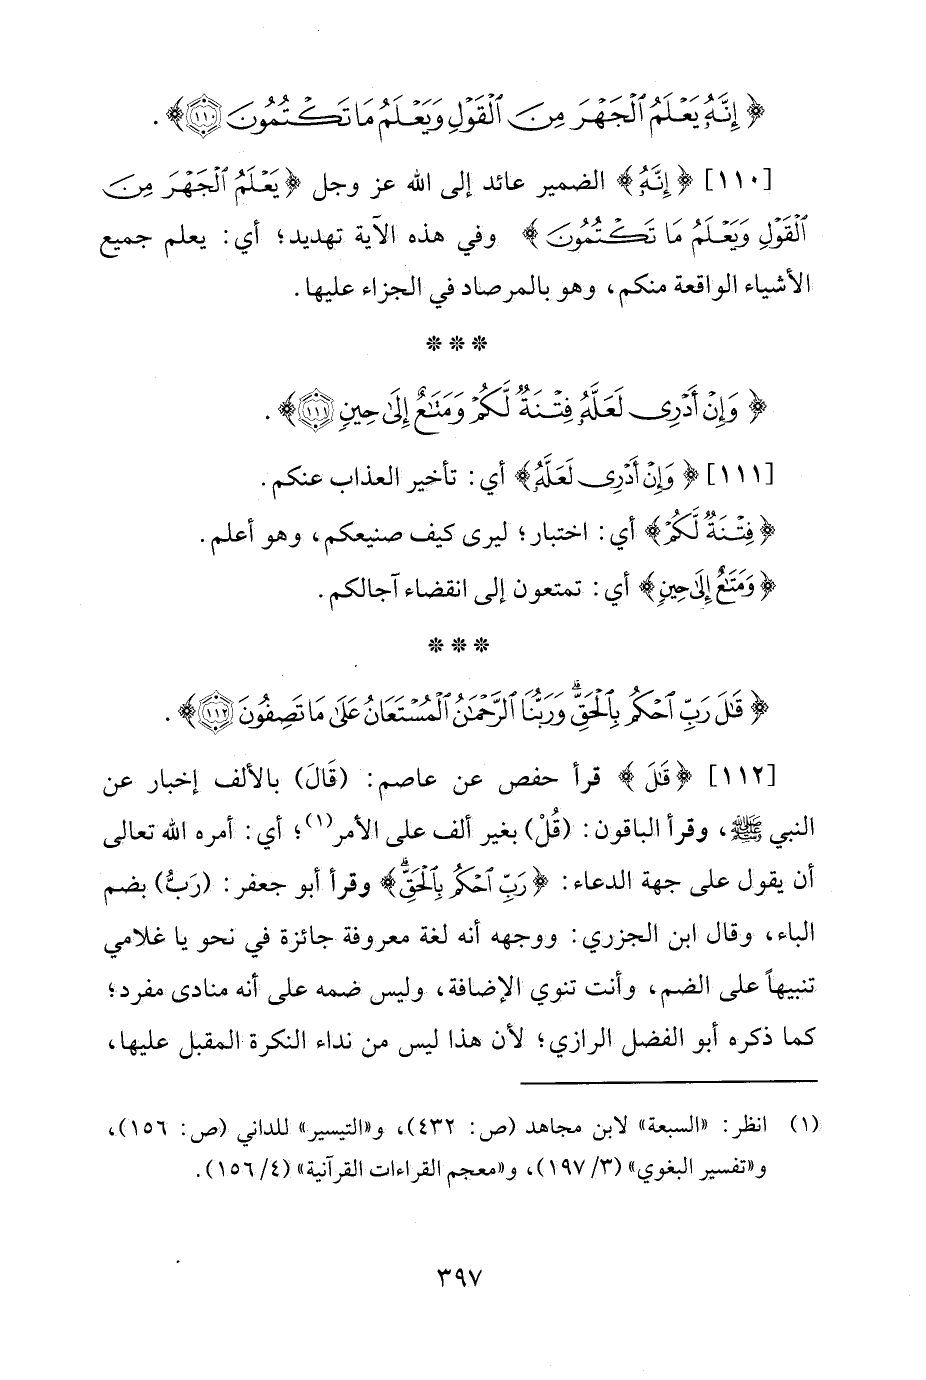 ﴿ إِنَّهُۥ يَعْلَمُ ٱلْجَهْرَ مِنَ ٱلْقَوْلِ وَيَعْلَمُ مَا تَكْتُمُونَ ١١٠﴾ .
[١١٠] ﴿ إِنَّهُۥ ﴾ الضمير عائد إلى الله عز وجل ﴿ يَعْلَمُ ٱلْجَهْرَ مِنَ
ٱلْقَوْلِ وَيَعْلَمُ مَا تَكْتُمُونَ ﴾ وفي هذه الآية تهديد؛ أي: يعلم جميع
الأشياء الواقعة منكم، وهو بالمرصاد في الجزاء عليها.
* * *
﴿ وَإِنْ أَدْرِى لَعَلَّهُۥ فِتْنَةٌ لَّكُمْ وَمَتَٰعٌ إِلَىٰ حِينٍ ١١١﴾ .
[١١١] ﴿ وَإِنْ أَدْرِى لَعَلَّهُۥ ﴾ أي: تأخير العذاب عنكم.
﴿ فِتْنَةٌ لَّكُمْ ﴾ أي: اختبار؛ ليرى كيف صنيعكم، وهو أعلم.
﴿ وَمَتَٰعٌ إِلَىٰ حِينٍ ﴾ أي: تمتعون إلى انقضاء آجالكم.
* * *
﴿ قَٰلَ رَبِّ ٱحْكُم بِٱلْحَقِّ ۗ وَرَبُّنَا ٱلرَّحْمَٰنُ ٱلْمُسْتَعَانُ عَلَىٰ مَا تَصِفُونَ ١١٢﴾ .
[١١٢] ﴿ قَٰلَ ﴾ قرأ حفص عن عاصم: (قَالَ) بالألف إخبار عن
النبي ﷺ، وقرأ الباقون: (قُلْ) بغير ألف على الأمر(١)؛ أي: أمره الله تعالى
أن يقول على جهة الدعاء: ﴿ رَبِّ ٱحْكُم بِٱلْحَقِّ ۗ ﴾ وقرأ أبو جعفر: (رَبُّ) بضم
الباء، وقال ابن الجزري: ووجهه أنه لغة معروفة جائزة في نحو يا غلامي
تنبيهاً على الضم، وأنت تنوي الإضافة، وليس ضمه على أنه منادى مفرد؛
كما ذكره أبو الفضل الرازي؛ لأن هذا ليس من نداء النكرة المقبل عليها،
(١) انظر: «السبعة» لابن مجاهد (ص: ٤٣٢)، و«التيسير» للداني (ص: ١٥٦)،
و«تفسير البغوي» (٣/ ١٩٧)، و«معجم القراءات القرآنية» (٤/ ١٥٦).
٣٩٧